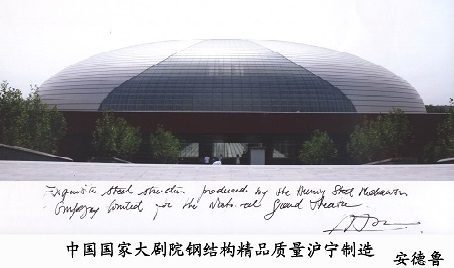 Exquisite steel structure produced by the Huning Steel
Company Limited for the National Grand Theatre
中国国家大剧院钢结构精品质量沪宁制造
安德鲁